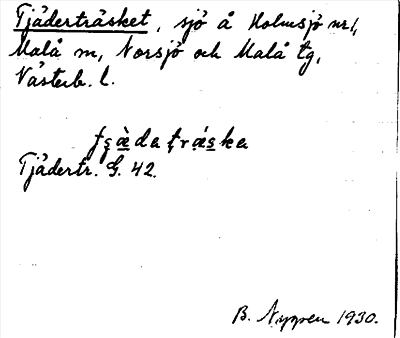 Tjäderträsket, sjö å Holmsjö nr 1,
Malå sn, Norsjö och Malå tg,
Västerb. l.
Tjädertr. G. 42.
B. Nyppen 1930.